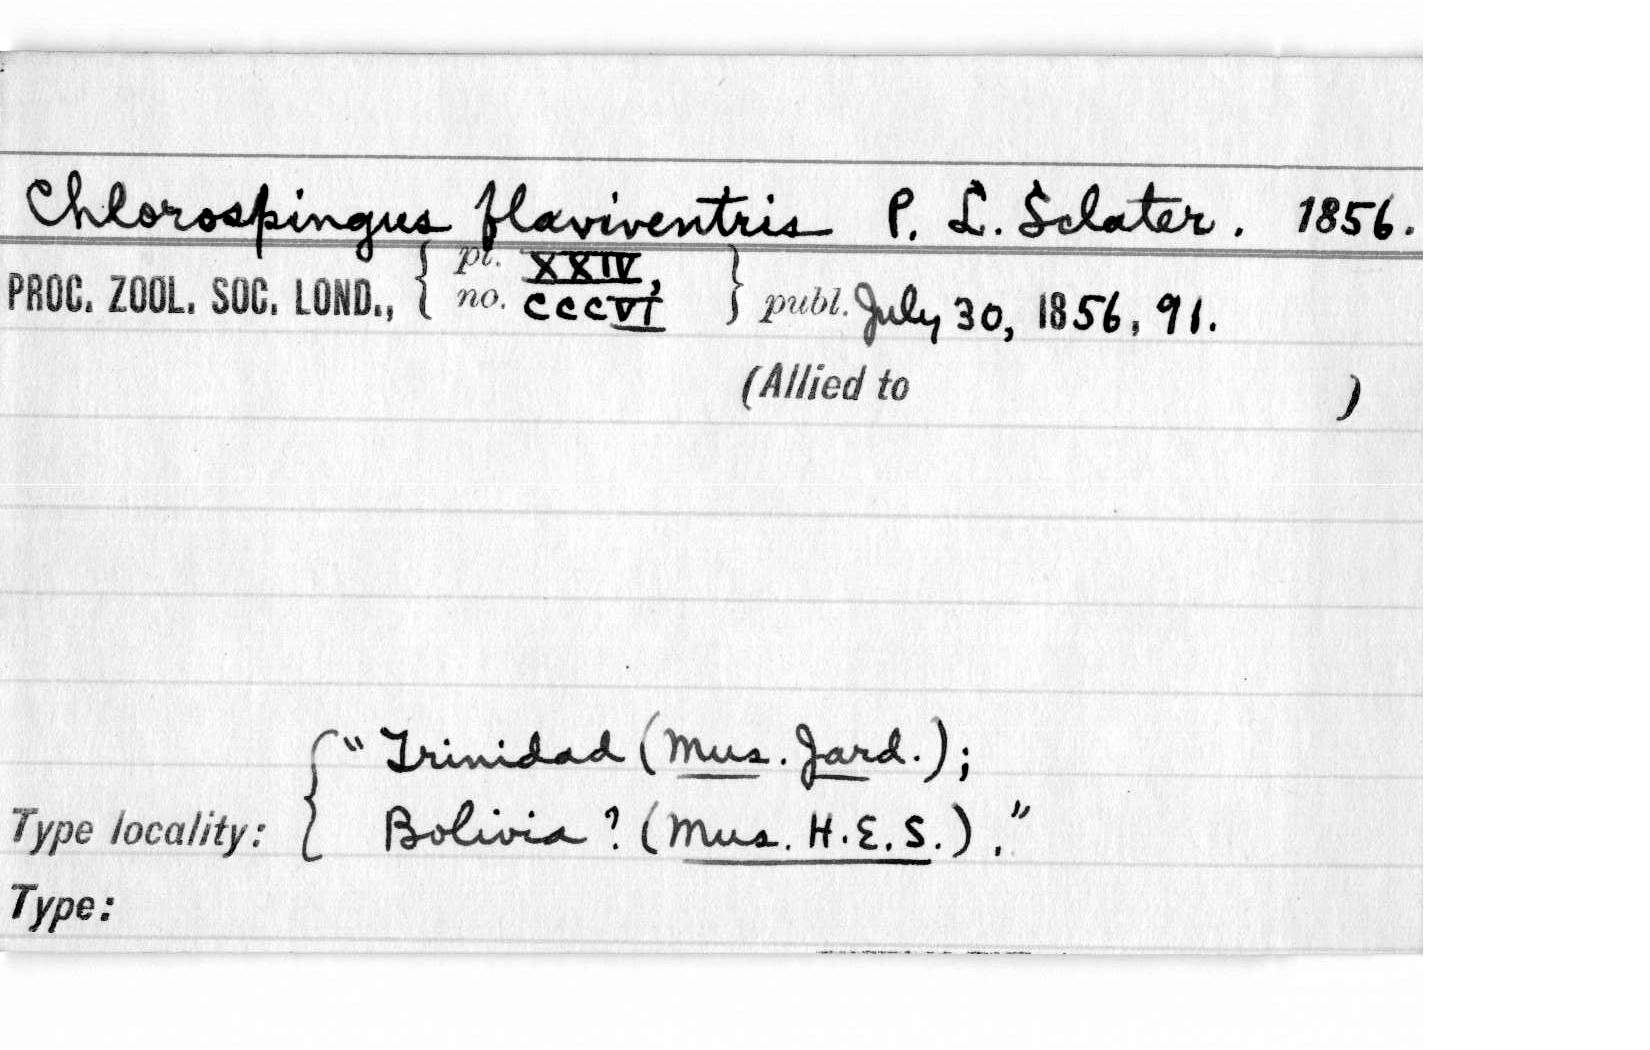 Chlorospingus flaviventris P. L. Sclater. 1856.
PROC. ZOOL. SOC. LOND., { pt. XXIV, no. CCCVI } publ. July 30, 1856, 91.
(Allied to )
Type locality: { "Trinidad (Mus. Jard.);
Bolivia? (Mus. H.E.S.)."
Type: